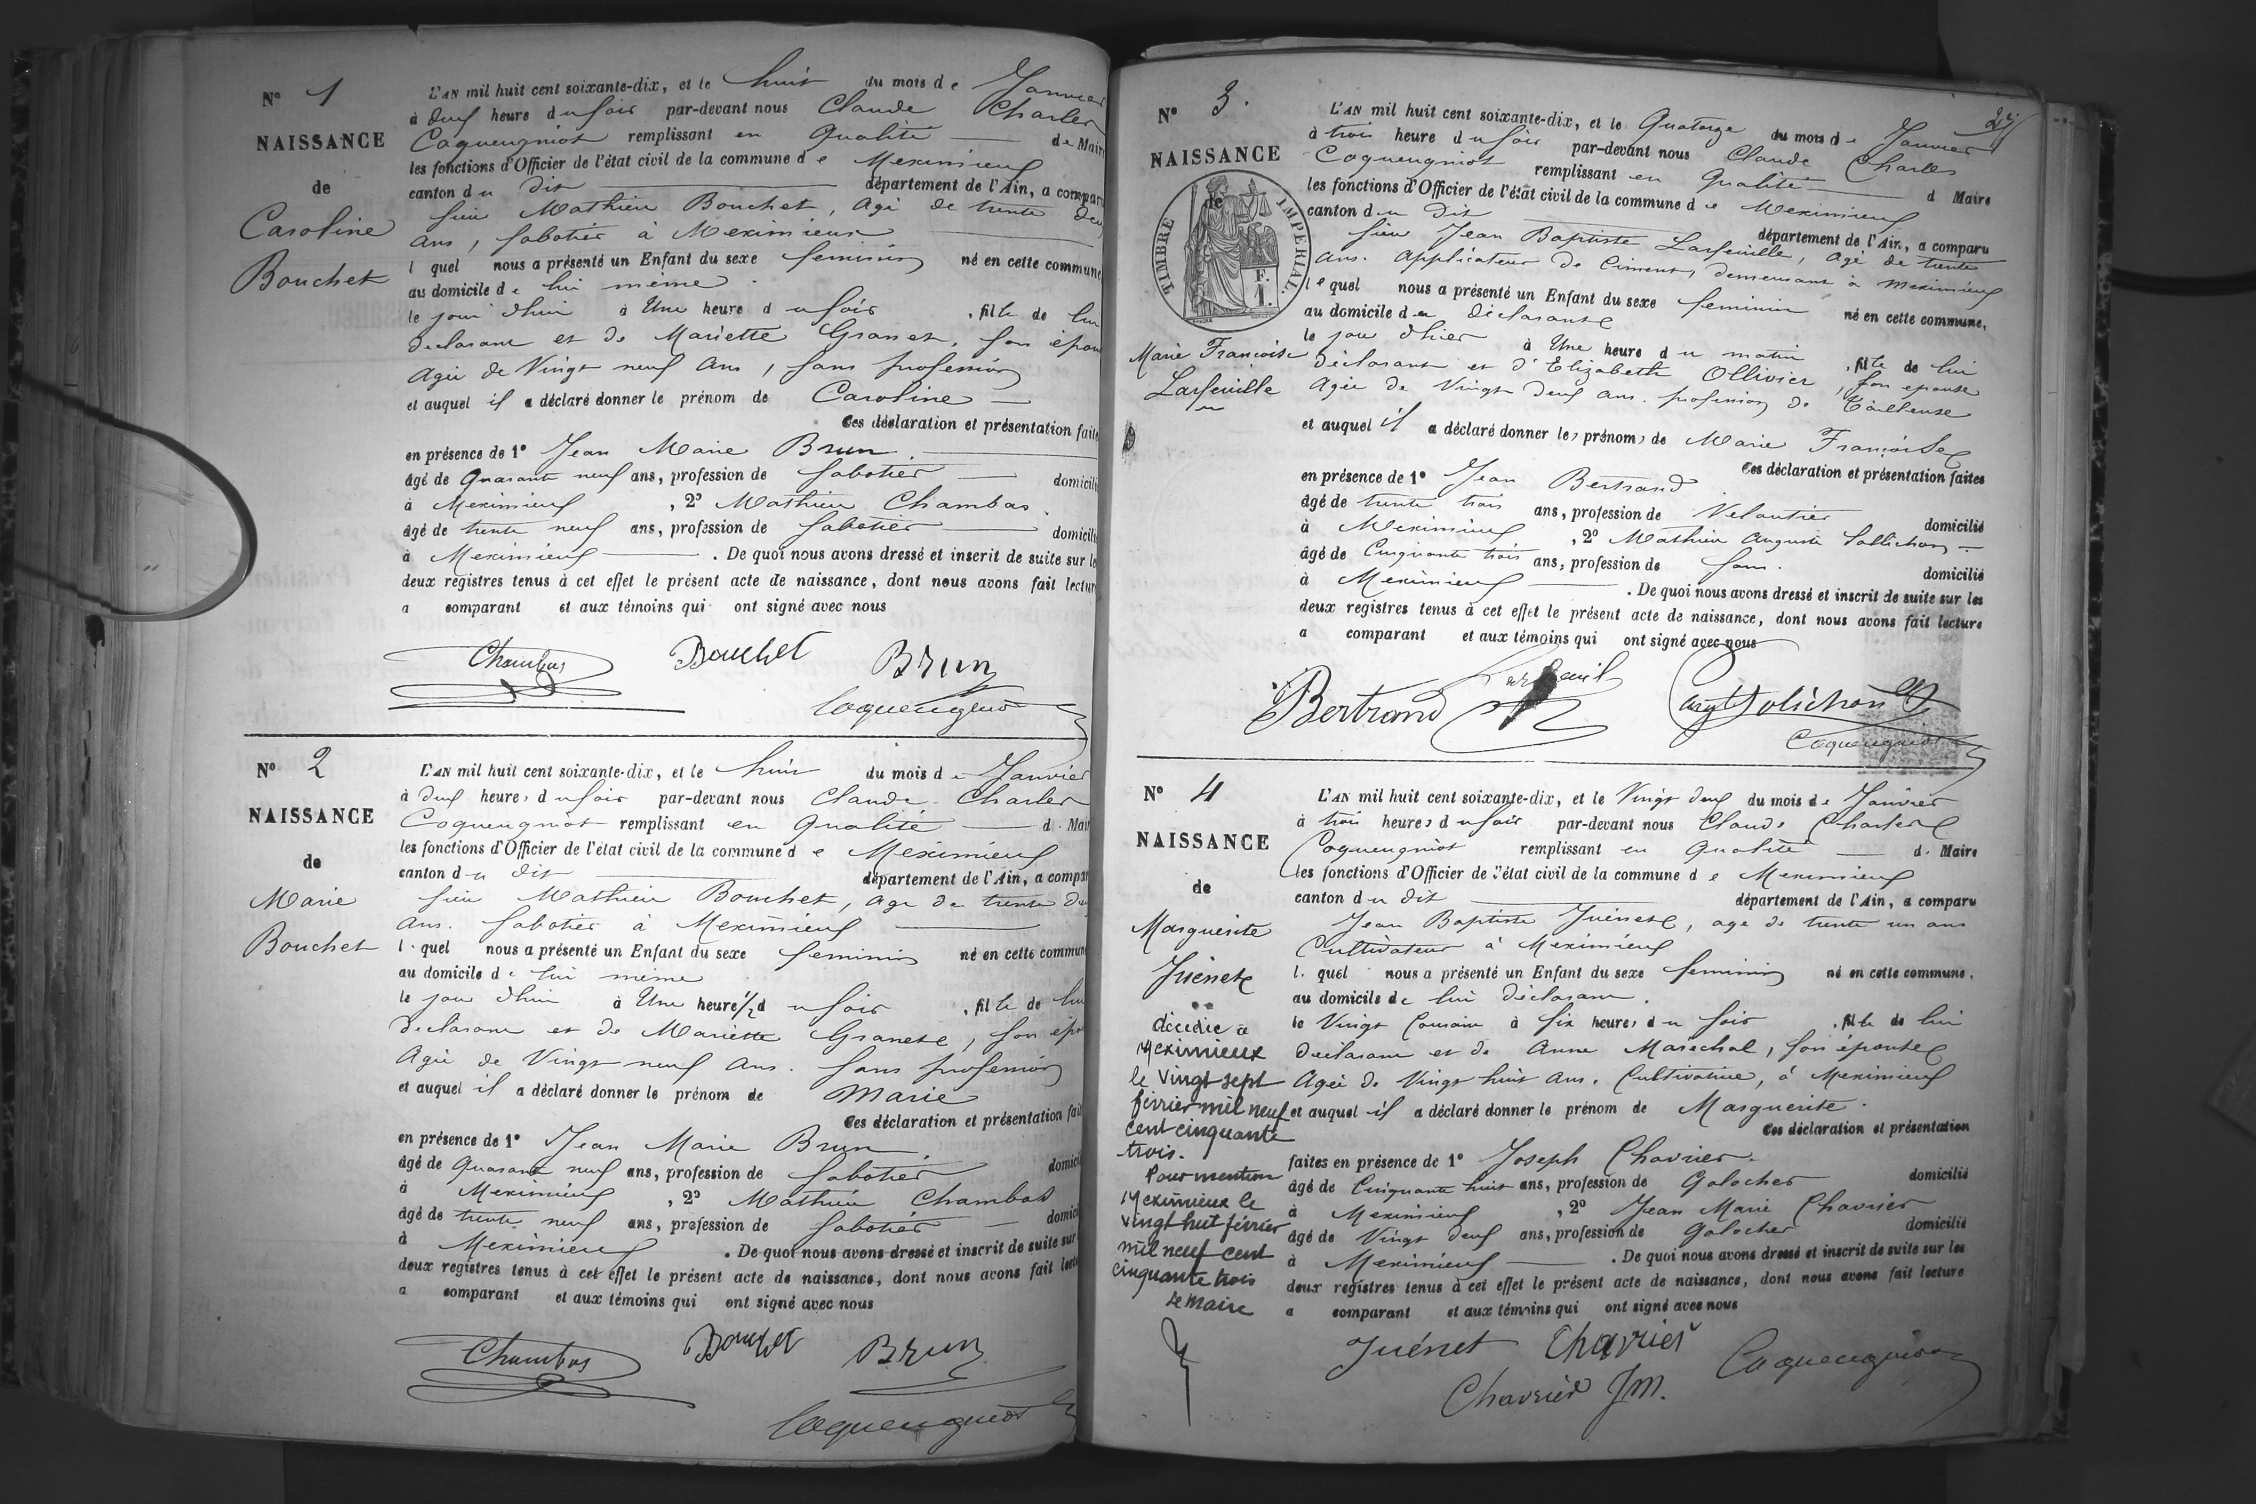 N° 1
NAISSANCE
de
Caroline
Bouchet
L'AN mil huit cent soixante-dix, et le huit du mois de Janvier
à deux heure du soir par-devant nous Claude Charles
Coquengniot remplissant en qualité de Maire
les fonctions d'Officier de l'état civil de la commune de Meximieux
canton du dit département de l'Ain, a comparu
sieur Mathieu Bouchet, agé de trente deux
ans, sabotier à Meximieux
lequel nous a présenté un Enfant du sexe feminin né en cette commune
au domicile de lui même
le jour d'hui à Une heure du soir, fille de lui
déclarant et de Mariette Granet, son épouse
Agée de Vingt neuf ans, sans profession
et auquel il a déclaré donner le prénom de Caroline
Ces déclaration et présentation faites
en présence de 1° Jean Marie Brun
âgé de Quarante neuf ans, profession de Sabotier domicilié
à Meximieux, 2° Mathieu Chambas
âgé de trente neuf ans, profession de Sabotier domicilié
à Meximieux. De quoi nous avons dressé et inscrit de suite sur les
deux registres tenus à cet effet le présent acte de naissance, dont nous avons fait lecture
a comparant et aux témoins qui ont signé avec nous
Chambas Bouchet Brun
Coquengniot
N° 2
NAISSANCE
de
Marie
Bouchet
L'AN mil huit cent soixante-dix, et le huit du mois de Janvier
à deux heures du soir par-devant nous Claude Charles
Coquengniot remplissant en qualité de Maire
les fonctions d'Officier de l'état civil de la commune de Meximieux
canton du dit département de l'Ain, a comparu
sieur Mathieu Bouchet, agé de trente deux
ans. Sabotier à Meximieux
lequel nous a présenté un Enfant du sexe feminin né en cette commune
au domicile de lui même
le jour d'hui à Une heure 1/2 du soir, fille de lui
Déclarant et de Mariette Granet, son épouse
Agée de Vingt neuf ans. sans profession
et auquel il a déclaré donner le prénom de Marie
Ces déclaration et présentation faites
en présence de 1° Jean Marie Brun
âgé de Quarante neuf ans, profession de Sabotier domicilié
à Meximieux, 2° Mathieu Chambas
âgé de trente neuf ans, profession de Sabotier domicilié
à Meximieux. De quoi nous avons dressé et inscrit de suite sur
deux registres tenus à cet effet le présent acte de naissance, dont nous avons fait lecture
a comparant et aux témoins qui ont signé avec nous
Chambas Bouchet Brun
Coquengniot
N° 3.
NAISSANCE
de
TIMBRE IMPERIAL.
F.
1.
Marie Françoise
Larfeuille
L'AN mil huit cent soixante-dix, et le Quatorze du mois de Janvier
à trois heure du soir par-devant nous Claude Charles
Coquengniot remplissant en qualité d Maire
les fonctions d'Officier de l'état civil de la commune de Meximieux
canton du dit département de l'Ain, a comparu
sieur Jean Baptiste Larfeuille, agé de trente
ans. Applicateur de Ciment, demeurant à Meximieux
lequel nous a présenté un Enfant du sexe feminin né en cette commune,
au domicile du déclarant
le jour d'hier à Une heure du matin, fille de lui
déclarant et d'Elizabeth Ollivier, son épouse
Agée de Vingt deux ans. profession de Tailleuse
et auquel il a déclaré donner les prénoms de Marie Françoise
Ces déclaration et présentation faites
en présence de 1° Jean Bertrand
âgé de trente trois ans, profession de Veloutier domicilié
à Meximieux, 2° Mathieu Auguste Sollichon
âgé de Cinquante trois ans, profession de sans. domicilié
à Meximieux. De quoi nous avons dressé et inscrit de suite sur les
deux registres tenus à cet effet le présent acte de naissance, dont nous avons fait lecture
a comparant et aux témoins qui ont signé avec nous
Bertrand Augte Solichon
Coquengniot
N° 4
NAISSANCE
de
Marguerite
Juenet
décédée à
Meximieux
le vingt sept
février mil neuf
cent cinquante
trois.
Pour mention
Meximieux le
vingt huit février
mil neuf cent
cinquante trois
Le Maire
L'AN mil huit cent soixante-dix, et le Vingt deux du mois de Janvier
à trois heures du soir par-devant nous Claude Charles
Coquengniot remplissant en qualité d. Maire
les fonctions d'Officier de l'état civil de la commune de Meximieux
canton du dit département de l'Ain, a comparu
Jean Baptiste Juenet, agé de trente un ans
Cultivateur à Meximieux
lequel nous a présenté un Enfant du sexe feminin né en cette commune,
au domicile de lui déclarant.
le Vingt Courant à six heures du soir, fille de lui
déclarant et de Anne Maréchal, son épouse
Agée de Vingt huit ans. Cultivatrice, à Meximieux
et auquel il a déclaré donner le prénom de Marguerite.
Ces déclaration et présentation
faites en présence de 1° Joseph Chavrier.
âgé de Cinquante huit ans, profession de Galocher domicilié
à Meximieux, 2° Jean Marie Chavrier
âgé de Vingt deux ans, profession de Galocher domicilié
à Meximieux. De quoi nous avons dressé et inscrit de suite sur les
deux registres tenus à cet effet le présent acte de naissance, dont nous avons fait lecture
a comparant et aux témoins qui ont signé avec nous
Juénet Chavrier Coquengniot
Chavrier JM.